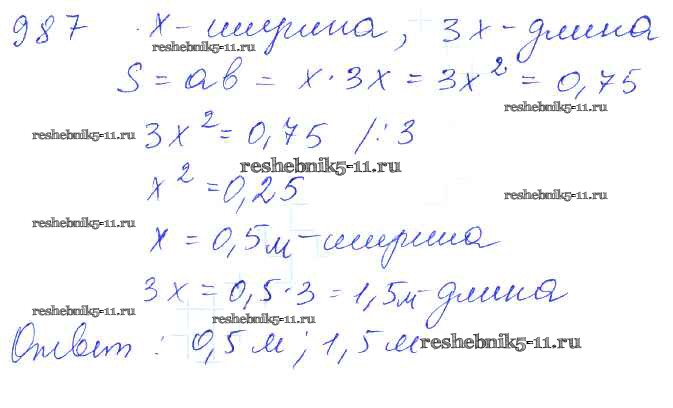 987 x - ширина, 3x - длина
reshebnik5-11.ru
S = ab = x · 3x = 3x² = 0,75
reshebnik5-11.ru
reshebnik5-11.ru
3x² = 0,75 /: 3
reshebnik5-11.ru
x² = 0,25
reshebnik5-11.ru
reshebnik5-11.ru
x = 0,5м - ширина
3x = 0,5 · 3 = 1,5м - длина
reshebnik5-11.ru
reshebnik5-11.ru
Ответ : 0,5 м ; 1,5 м
reshebnik5-11.ru